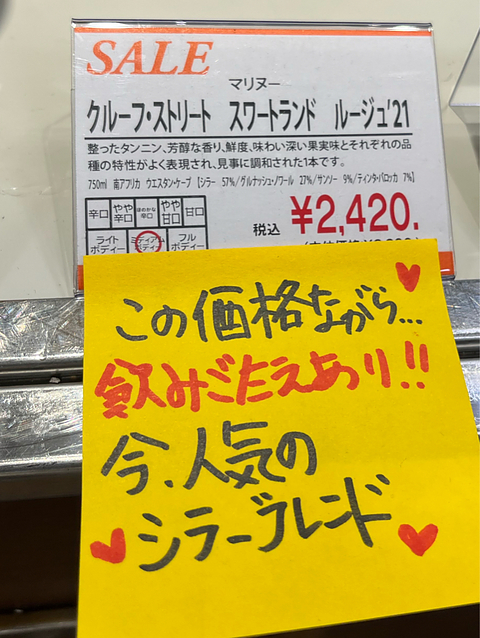 SALE
マリヌー
クルーフ・ストリート スワートランド ルージュ'21
整ったタンニン、芳醇な香り、鮮度、味わい深い果実味とそれぞれの品
種の特性がよく表現され、見事に調和された1本です。
750ml 南アフリカ ウエスタン・ケープ 【シラー 57%/グルナッシュ・ノワール 27%/サンソー 9%/ティンタ・バロッカ 7%】
辛口 やや辛口 ほのかな辛口 やや甘口 甘口
税込 ¥2,420.
ライトボディー ミディアムボディー フルボディー
この価格ながら...
飲みごたえあり!!
今、人気の
シラーブレンド